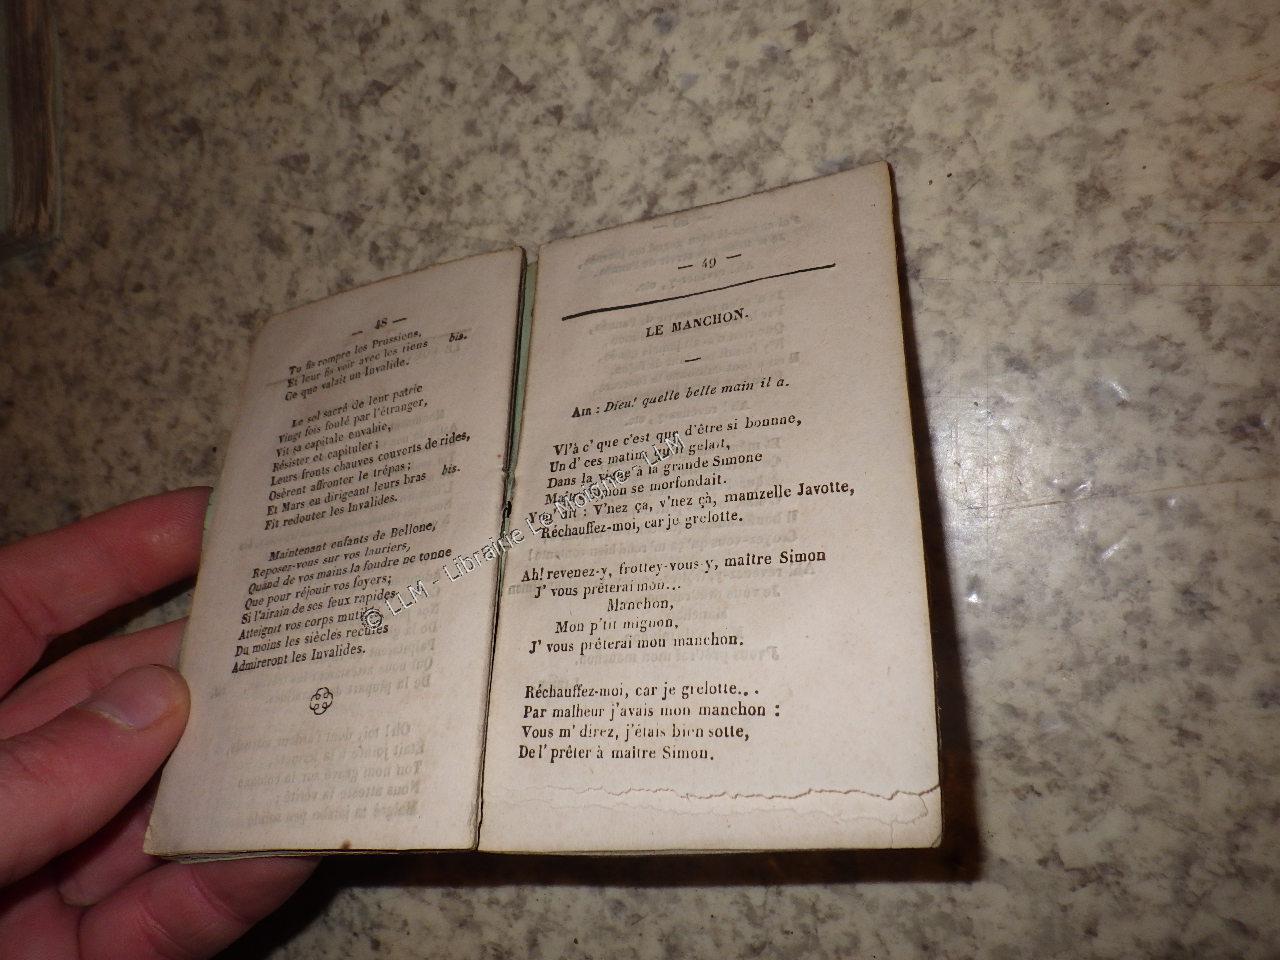 — 48 —
Tu fis rompre les Prussiens,
Et leur fis voir avec les tiens bis.
Ce que valait un Invalide.
Le sol sacré de leur patrie
Vingt fois foulé par l'étranger,
Vit sa capitale envahie,
Résister et capituler ;
Leurs fronts chauves couverts de rides,
Osèrent affronter le trépas ;
Et Mars en dirigeant leurs bras bis.
Fit redouter les Invalides.
Maintenant enfants de Bellone,
Reposez-vous sur vos lauriers,
Quand de vos mains la foudre ne tonne
Que pour réjouir vos foyers ;
Si l'airain de ses feux rapides
Atteignit vos corps mutilés
Du moins les siècles reculés
Admireront les Invalides.
— 49 —
LE MANCHON.
—
AIR : Dieu! quelle belle main il a.
Vl'à c' que c'est que d'être si bonnne,
Un d' ces matins qu'il gelait,
Dans la à la grande Simone
Simon se morfondait.
dit : V'nez ça, v'nez çà, mamzelle Javotte,
Réchauffez-moi, car je grelotte.
Ah! revenez-y, frottey-vous-y, maître Simon
J' vous prêterai mon...
Manchon,
Mon p'tit mignon,
J' vous prêterai mon manchon.
Réchauffez-moi, car je grelotte...
Par malheur j'avais mon manchon :
Vous m' direz, j'étais bien sotte,
De l' prêter à maître Simon.
© LLM - Librairie Le Moigne - LLM